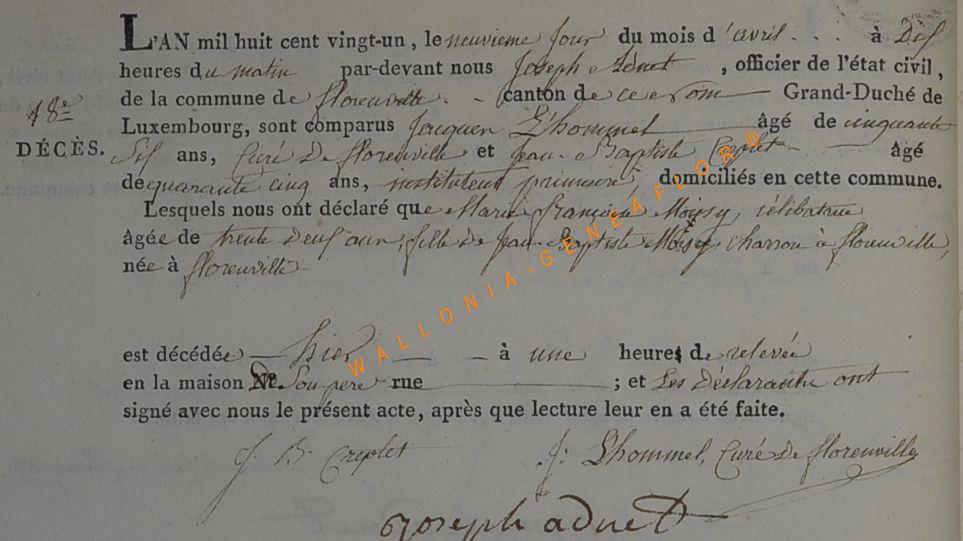 L'AN mil huit cent vingt-un, le neuvieme jour du mois d'avril . . . à Dix
heures du matin par-devant nous Joseph Adnet, officier de l'état civil,
de la commune de florenville - canton de ce nom — Grand-Duché de
18e Luxembourg, sont comparus Jacques L'hommel âgé de cinquante
DÉCÈS. Six ans, Curé De florenville et Jean Baptiste Creplet âgé
de quarante cinq ans, instituteur primaire, domiciliés en cette commune.
Lesquels nous ont déclaré que Marie françoise Moisy, célibataire
âgée de trente deux ans, fille de Jean Baptiste Moisy, charron à florenville,
née à florenville
est décédée — hier — - à une heure de relevée
en la maison De Son pere rue ; et Les Déclarants ont
signé avec nous le présent acte, après que lecture leur en a été faite.
J. B. Creplet J: Lhommel, Curé De florenville
Joseph adnet
WALLONIA-GENEAFLOR®